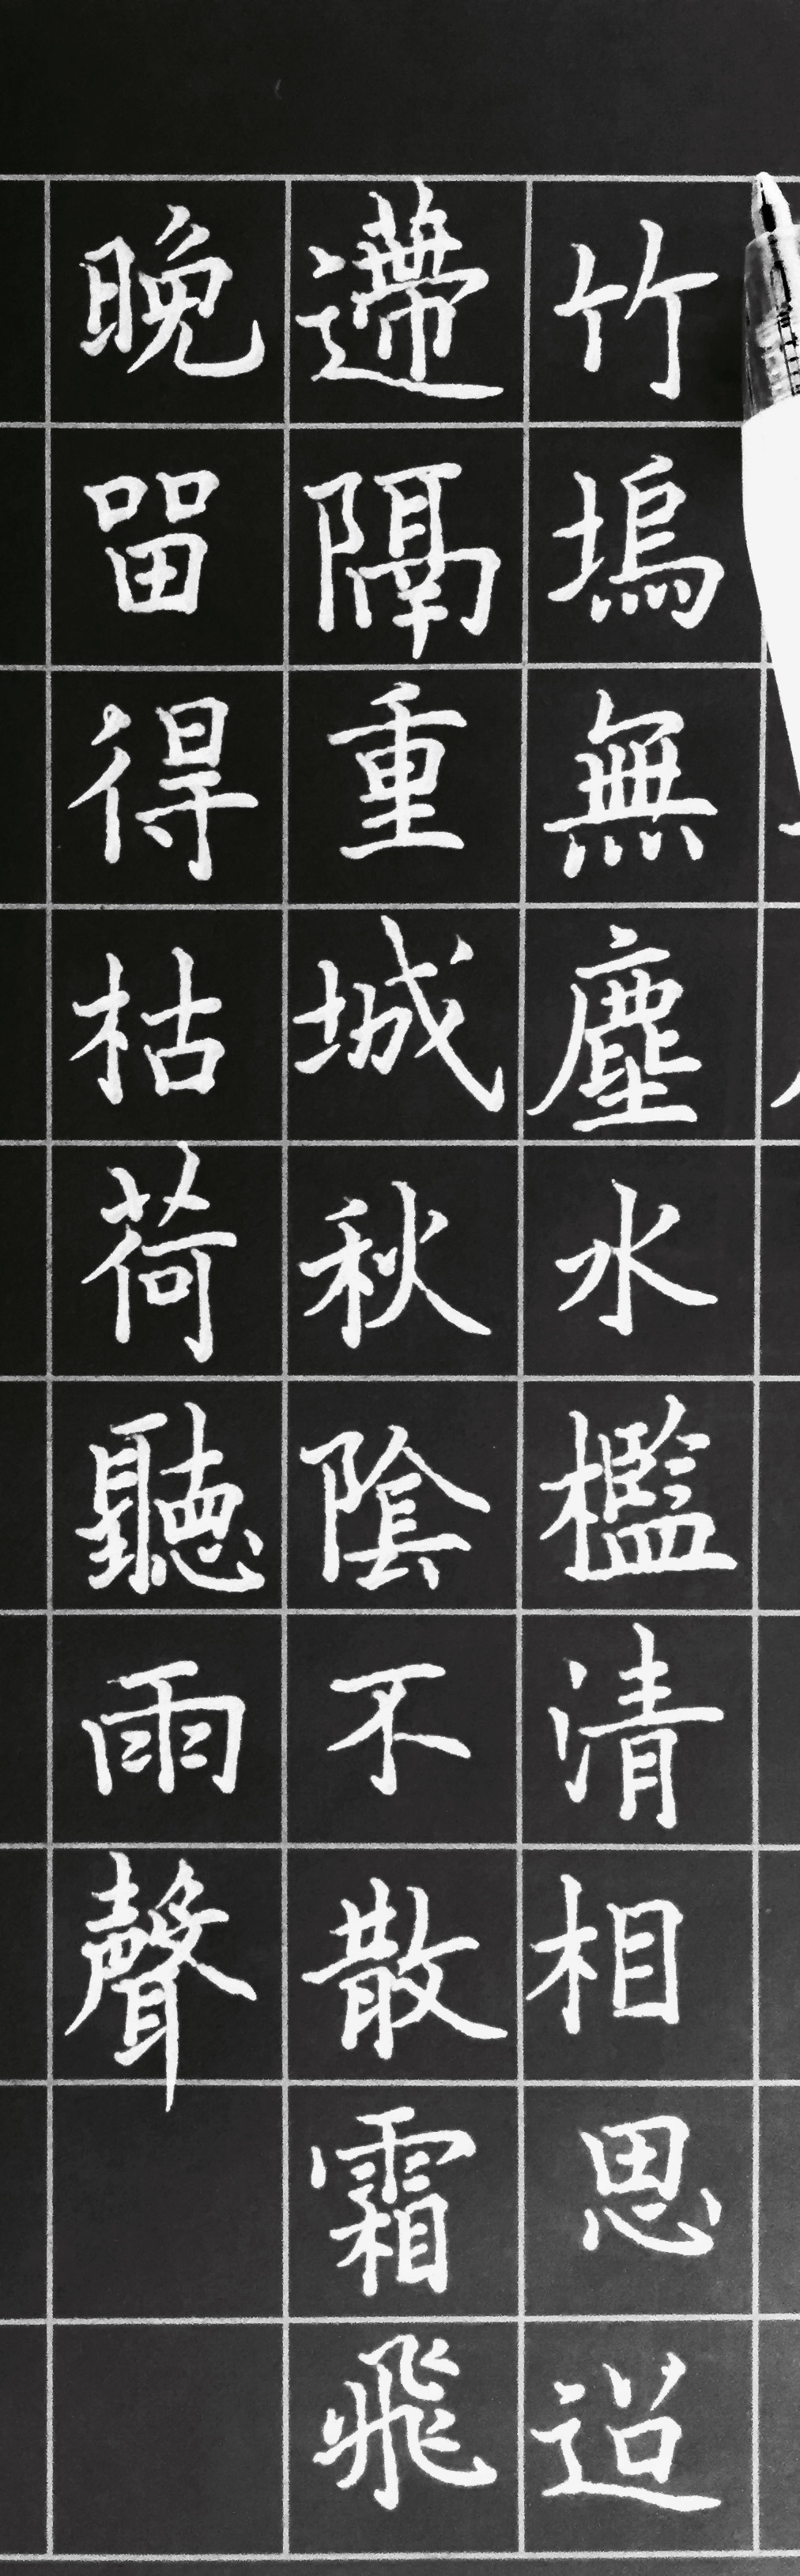 竹塢無塵水檻清相思迢
遰隔重城秋陰不散霜飛
晚畱得枯荷聽雨聲